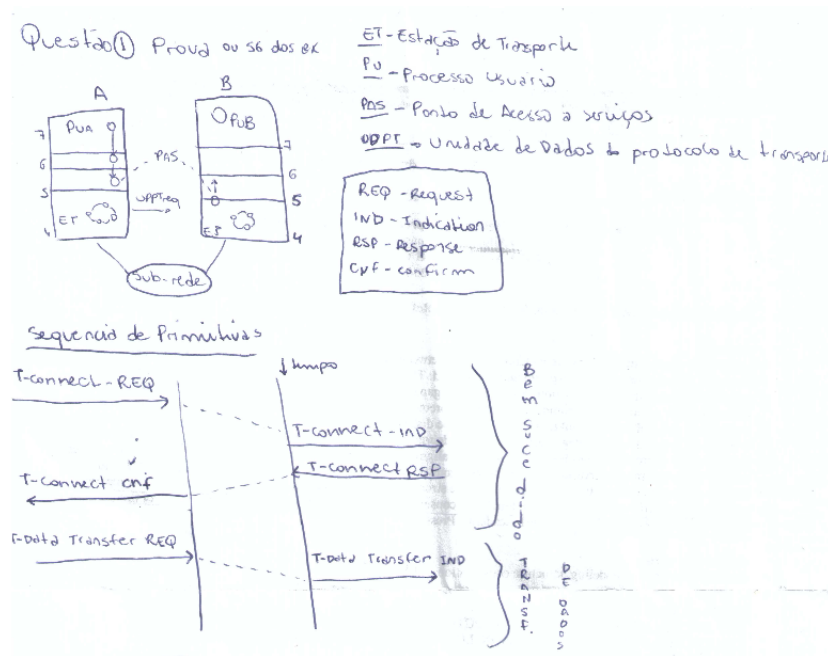 Questão ① Prova ou só dos ex
ET - Estação de Transporte
PU - Processo Usuário
PAS - Ponto de Acesso a serviços
UDPT - Unidade de Dados do protocolo de transporte
A
B
7
PUA
6
5
ET
4
PAS
UDPTreq
PUB
7
6
5
4
Sub-rede
REQ - Request
IND - Indication
RSP - Response
CNF - confirm
Sequencia de Primitivas
tempo
T-connect-REQ
T-connect-IND
T-connect RSP
T-connect cnf
T-Data Transfer REQ
T-Data Transfer IND
Bem sucedido
TRANSF.
DE DADOS